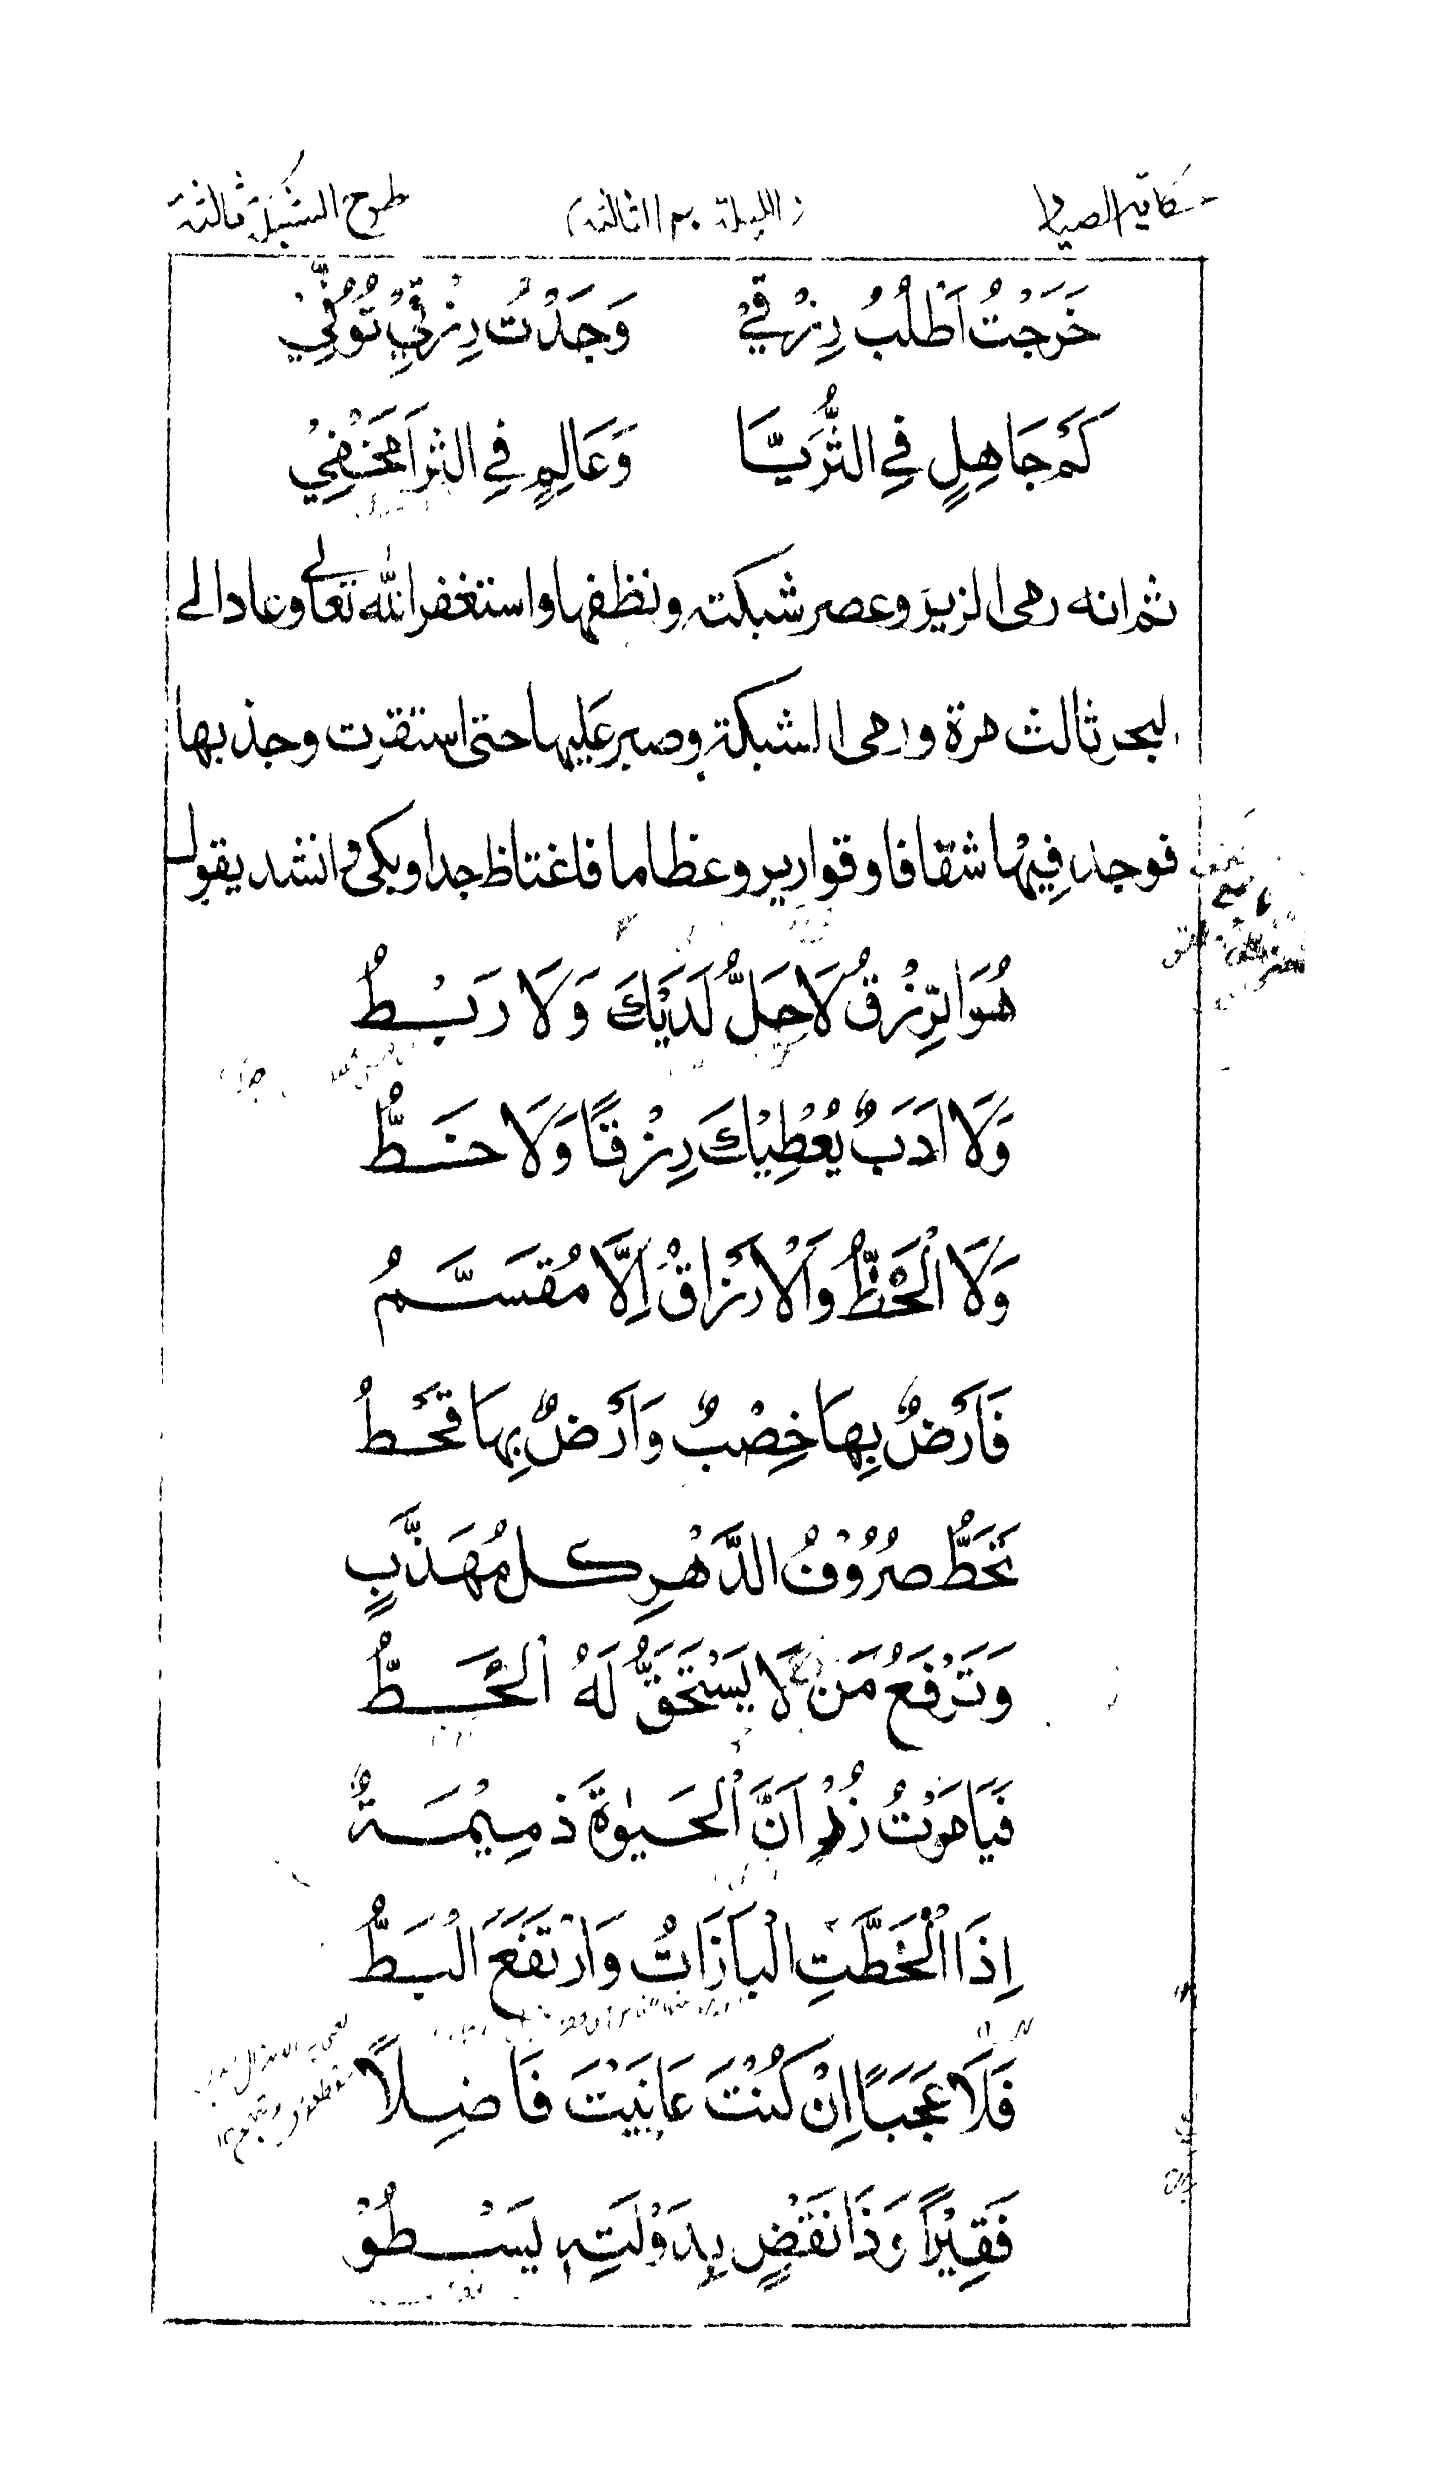 حكاية الصياد (الليلة ٣ الثالثة) طرح الشبكة ثالثة
خَرَجْتُ اَطْلُبُ رِزْقِيْ وَجَدْتُ رِزْقِيْ تُوُفِّيْ
كَمْ جَاهِلٍ فِي الثُّرَيَّا وَعَالِمٍ فِي الثرَا مَخْفِيْ
ثم انه رمى الزير وعصر شبكته ونظفها واستغفر الله تعالى وعاد الى
البحر ثالث مرة ورمى الشبكة وصبر عَليها حتى استقرت وجذبها
فوجد فِيْها شقافا وقوارير وعظاما فاغتاظ جدا وبكى وانشد يقول
هُوَ الرِّزْقُ لَا حَلٌّ لَدَيْكَ وَلَا رَبْطٌ
وَلَا اَدَبٌ يُعْطِيْكَ رِزْقًا وَلَا خَطٌّ
وَلَا الْحَظُّ وَالْاَرْزَاقُ اِلَّا مُقَسَّمُ
فَاَرْضٌ بِهَا خِصْبٌ وَاَرْضٌ بِهَا قَحْطُ
تَحَطُّ صُرُوْفُ الدَّهْرِ كل مُهَذَّبٍ
وَتَرْفَعُ مَنْ لَا يَسْتَحَقُّ لَهُ الْحَطُّ
فَيَا مَوْتُ زُرْ اَنَّ الْحَيٰوةَ ذمِيْمَةٌ
اِذَا انْحَطَّتِ الْبَازَاتُ وَارْتَفَعَ الْبَطُّ
فَلَا عَجَبًا اِنْ كُنْتَ عَايَنْتَ فَاضِلًا
فَقِيْرًا وَذَا نَقْصٍ بِدَوْلَتِهٖ يَسْطُوْ